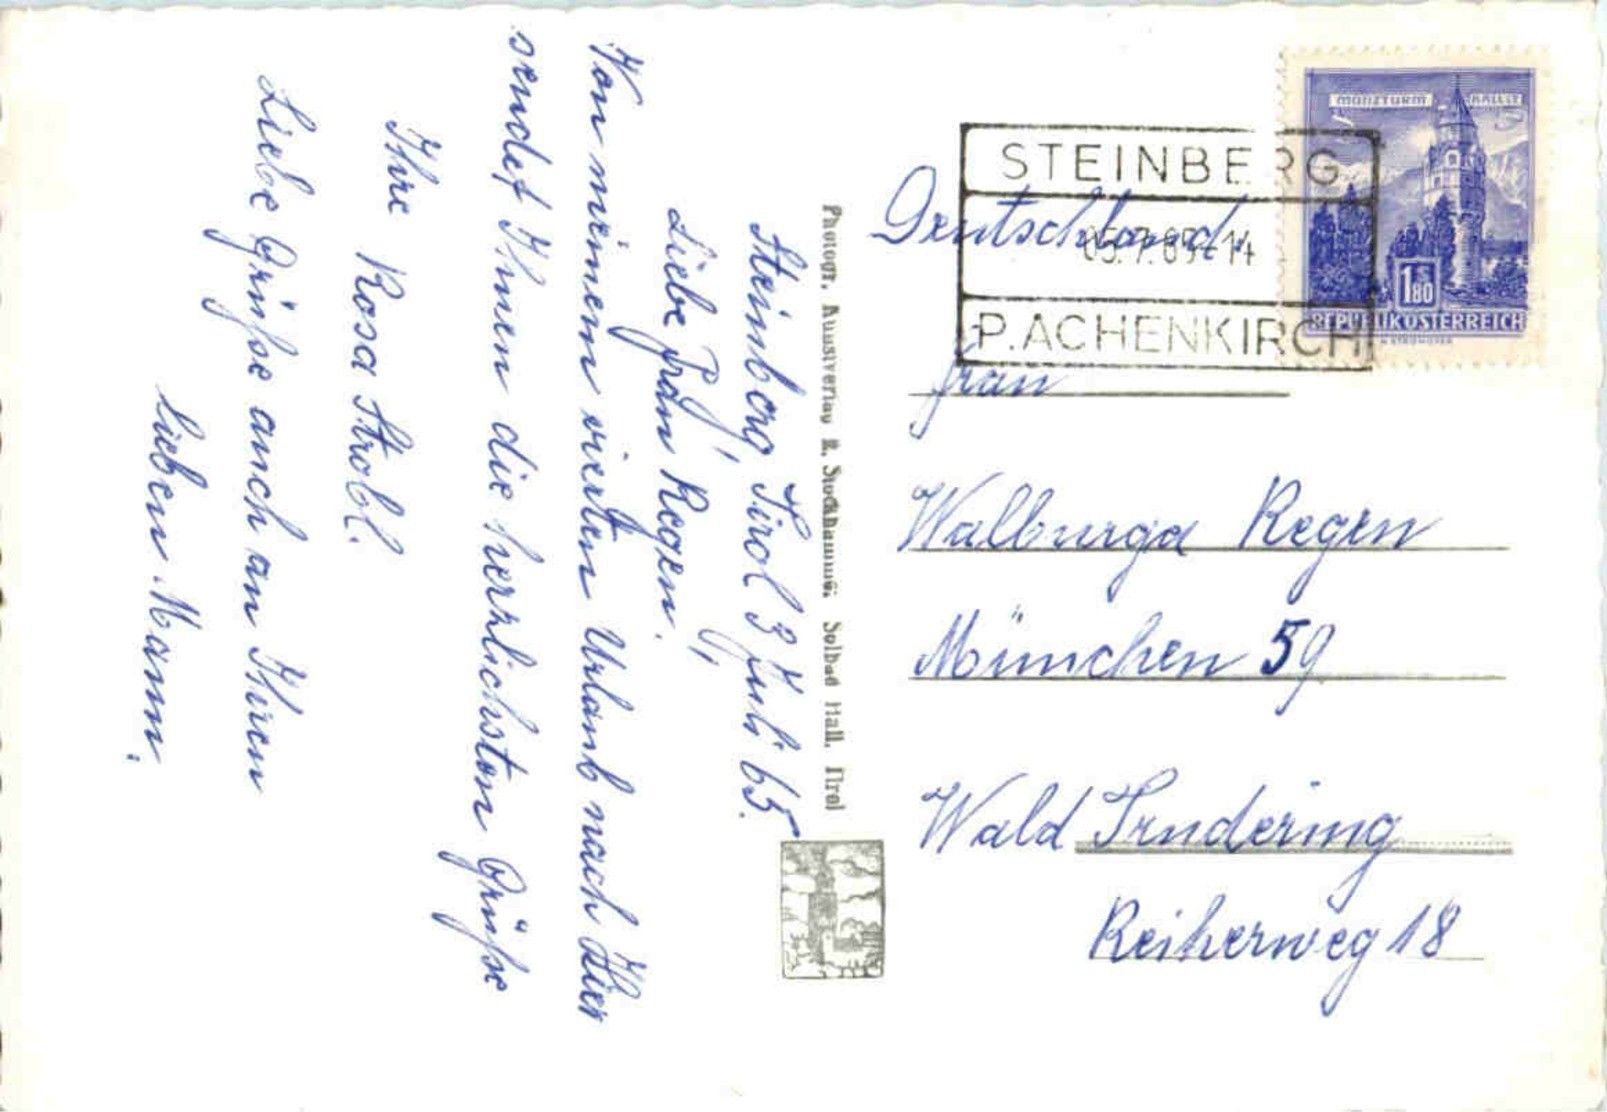 Steinberg, Tirol 3 Juli 65.
Liebe Frau Regen!
Von meinem vierten Urlaub nach hier
sendet Ihnen die herzlichsten Grüße
Ihre Rosa Strobl.
Liebe Grüße auch an Ihren
lieben Mann.
Photogr. Kunstverlag R. Stockhammer, Solbad Hall, Tirol
MÜNZTURM HALL I.T.
1.80 S
REPUBLIK ÖSTERREICH
STEINBERG
P. ACHENKIRCH
Deutschland.
Frau
Walburga Regen
München 59
Wald Trudering
Reiherweg 18